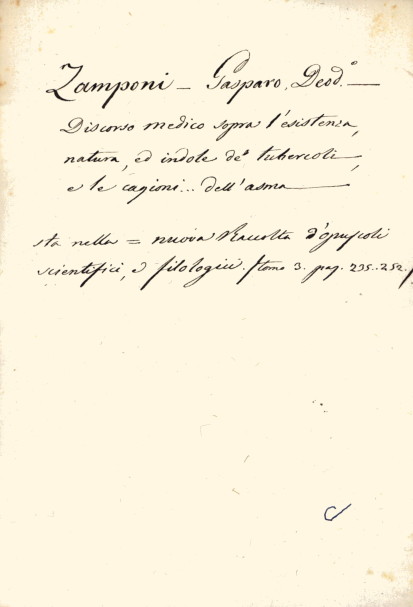 Zamponi — Gasparo, Deod.º —
Discorso medico sopra l'esistenza,
natura, ed indole de' tubercoli,
e le cagioni... dell'asma —
sta nella = nuova Raccolta d'opuscoli
scientifici, e filologici. (tomo 3. pag. 235..252.)